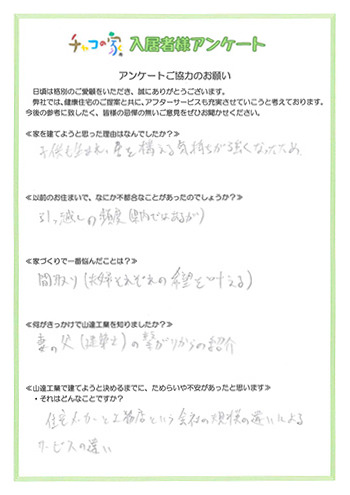 チャコの家 入居者様アンケート
アンケートご協力のお願い
日頃は格別のご愛顧をいただき、誠にありがとうございます。
弊社では、健康住宅のご提案と共に、アフターサービスも充実させていこうと考えております。
今後の参考に致したく、皆様の忌憚の無いご意見をぜひお聞かせください。
≪家を建てようと思った理由はなんでしたか?≫
子供も生まれ、居を構える気持ちが強くなったため
≪以前のお住まいで、なにか不都合なことがあったのでしょうか?≫
引っ越しの頻度(県内ではあるが)
≪家づくりで一番悩んだことは?≫
間取り(夫婦それぞれの希望を叶える)
≪何がきっかけで山達工業を知りましたか?≫
妻の父(建築士)の繋がりからの紹介
≪山達工業で建てようと決めるまでに、ためらいや不安があったと思います≫
・それはどんなことですか?
住宅メーカーと工務店という会社の規模の違いによる
サービスの違い